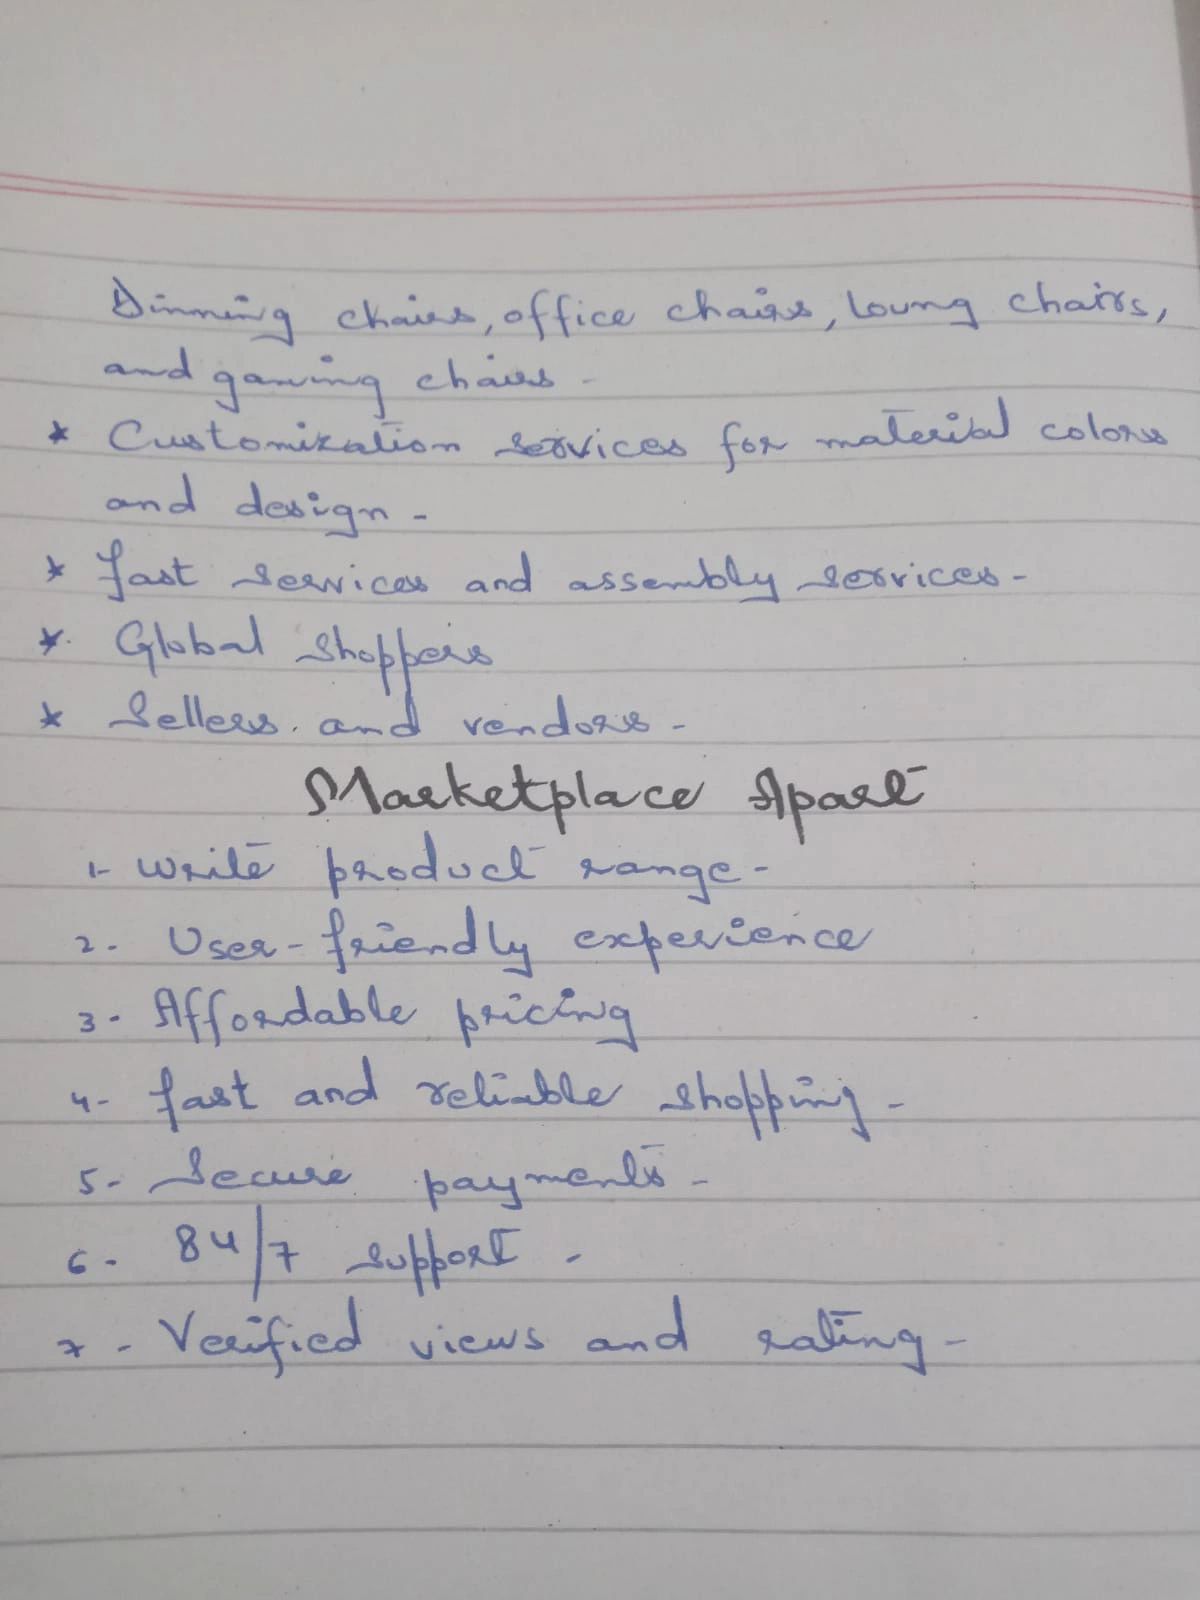 Dinning chairs, office chairs, loung chairs,
and gaming chairs -
* Customization services for material colors
and design -
* fast services and assembly services -
* Global shoppers
* Sellers. and vendors -
Marketplace Apart
1- write product range -
2- User-friendly experience
3- Affordable pricing
4- fast and reliable shopping -
5- Secure payments -
6- 84/7 support -
7- Verified views and rating -